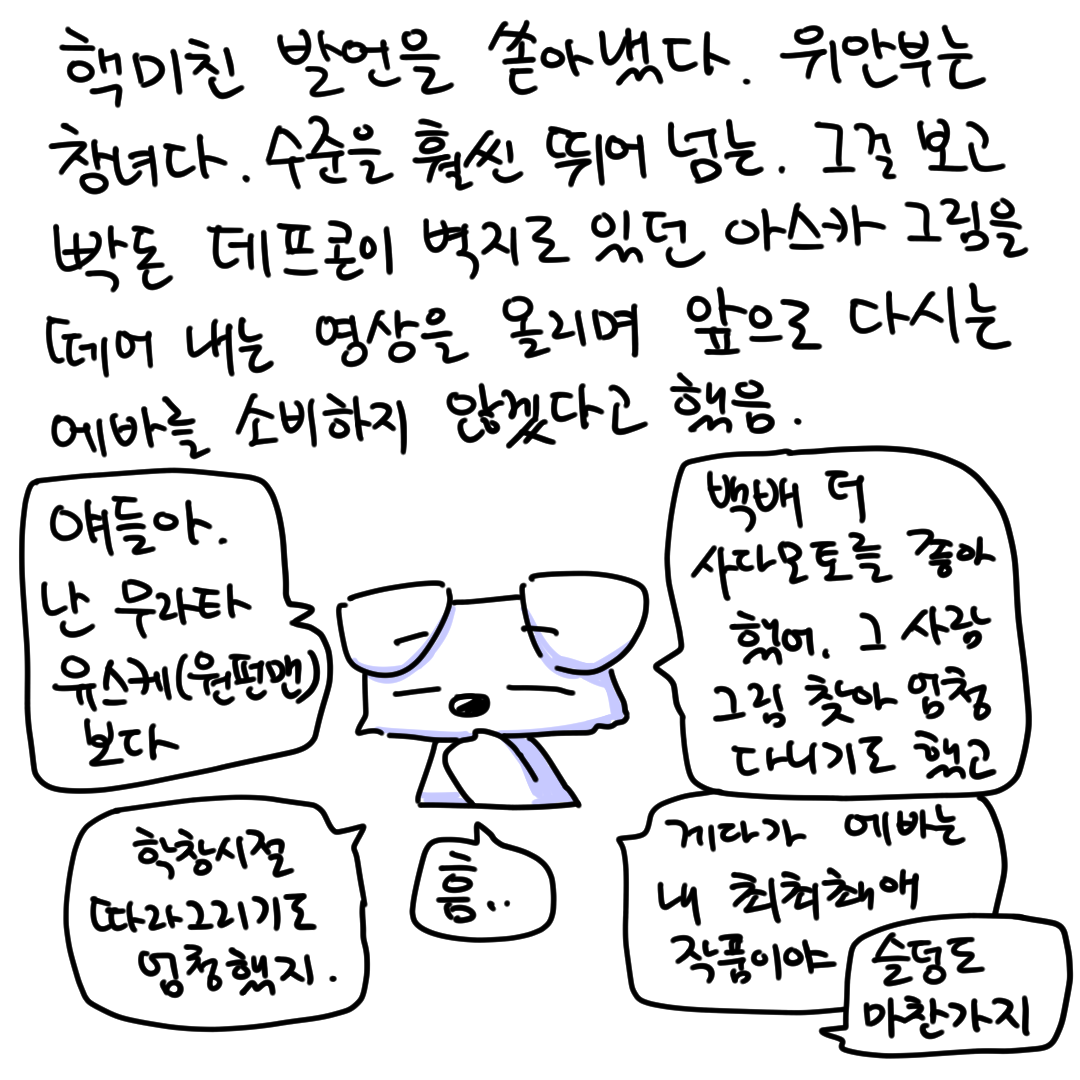 핵미친 발언을 쏟아냈다. 위안부는
창녀다. 수준을 훨씬 뛰어 넘는. 그걸 보고
빡돈 데프콘이 벽지로 있던 아스카 그림을
떼어 내는 영상을 올리며 앞으로 다시는
에바를 소비하지 않겠다고 했음.
얘들아.
난 무라타
유스케(원펀맨)
보다
백배 더
사다모토를 좋아
했어. 그 사람
그림 찾아 엄청
다니기도 했고
학창시절
따라그리기도
엄청했지.
흠..
게다가 에바는
내 최최최애
작품이야
슬덩도
마찬가지